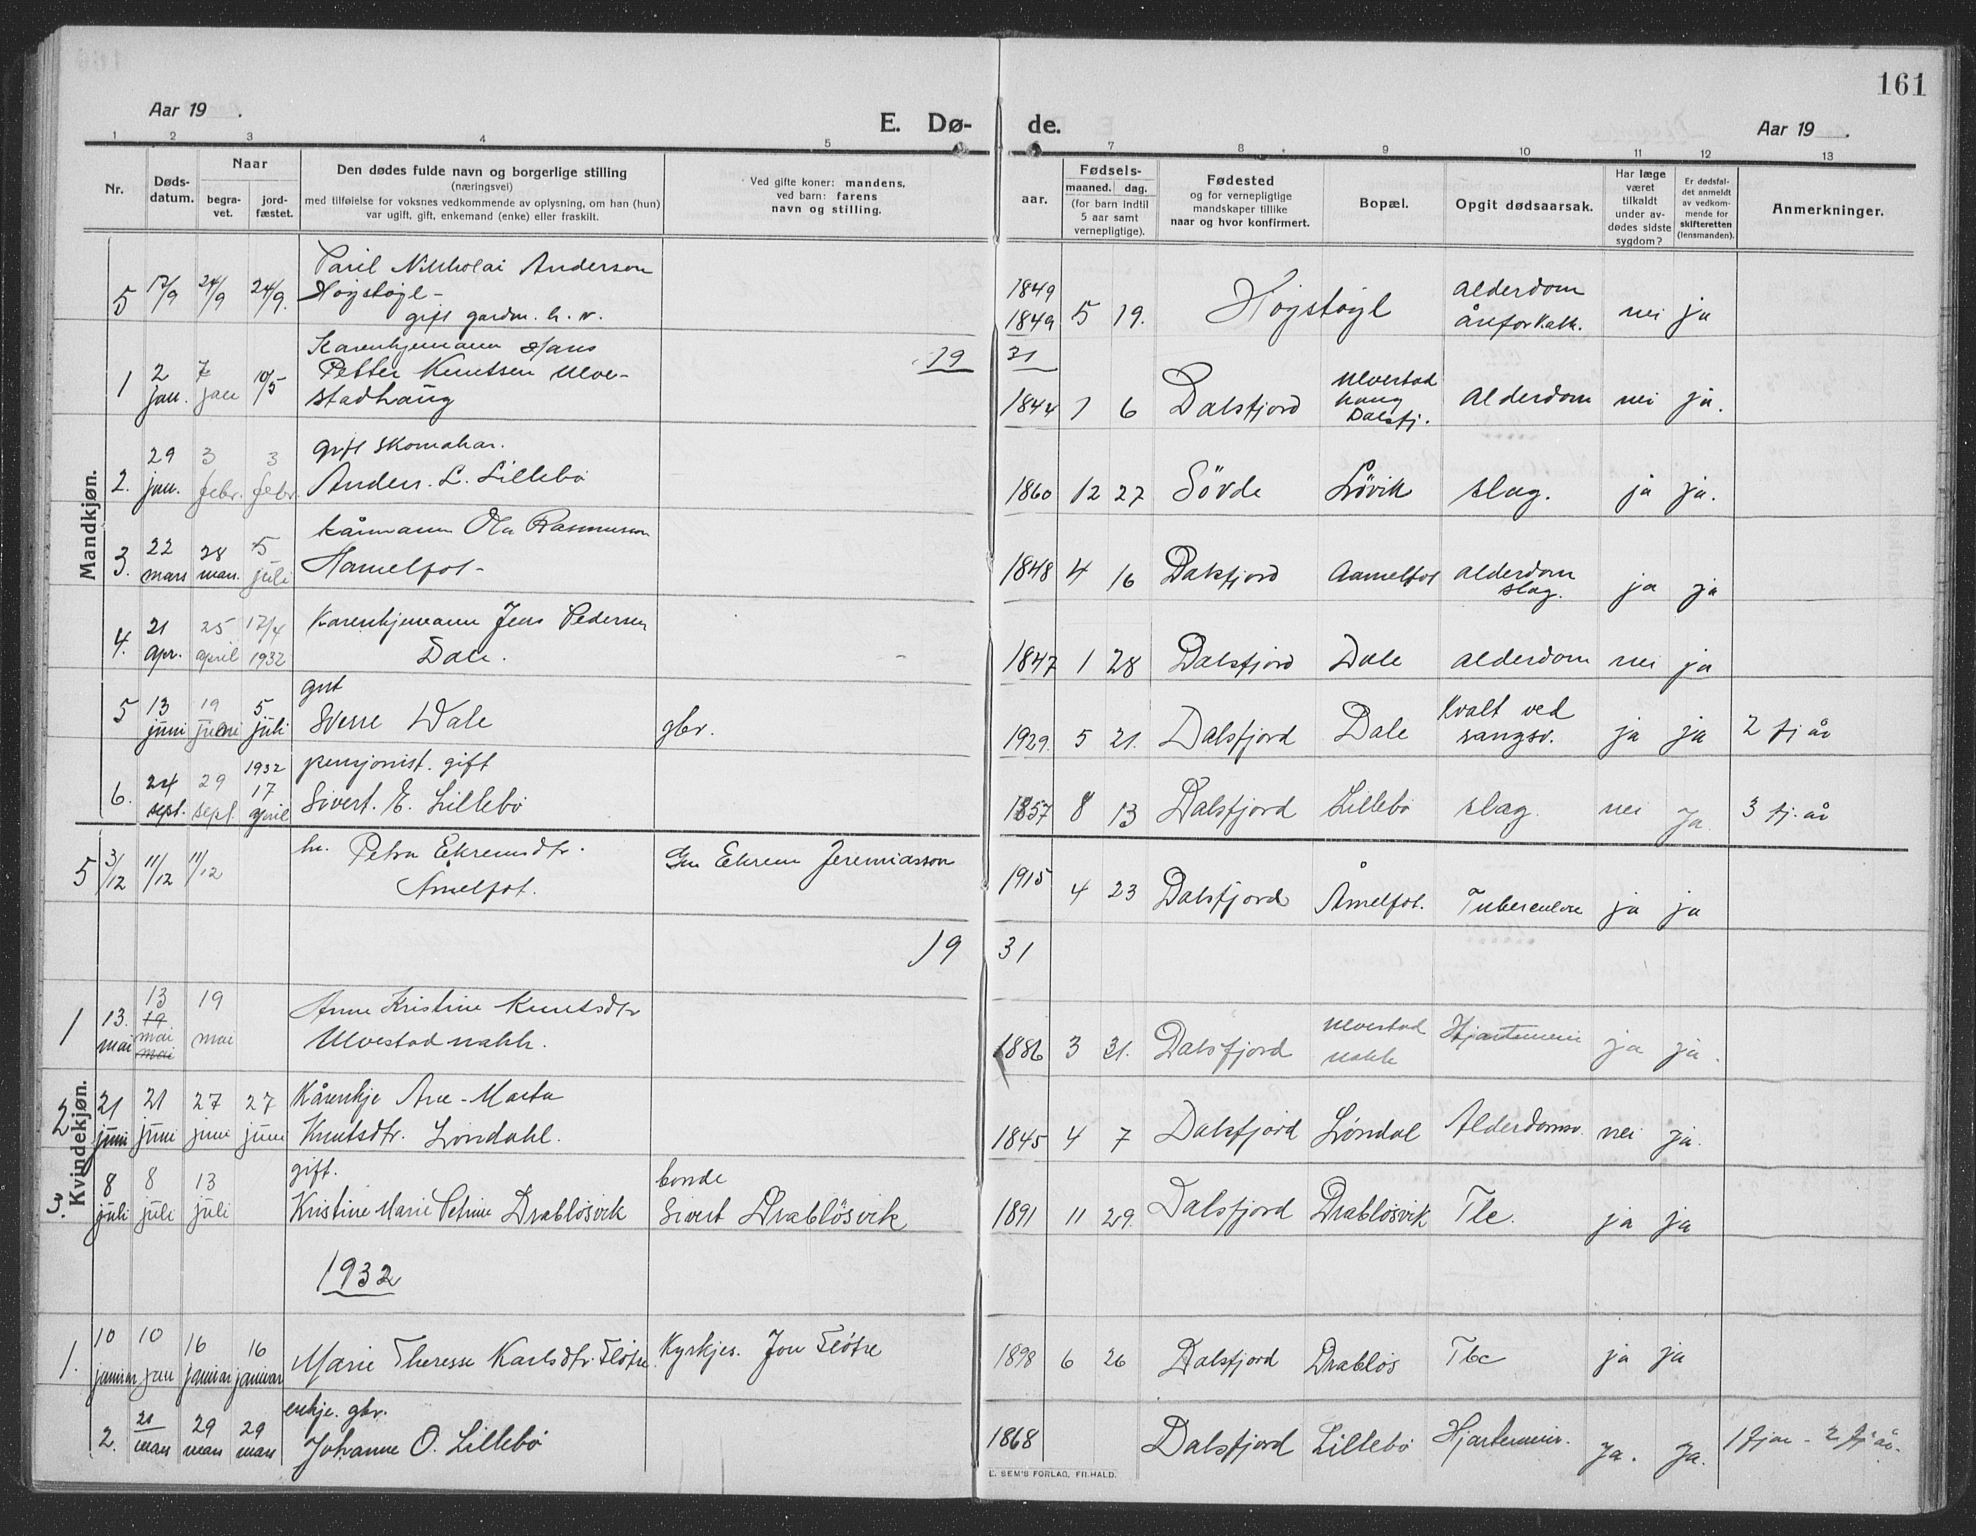 161
Aar 19 .
E. Dø- de.
Aar 19 .
1 2 3 4 5 7 8 9 10 11 12 13
Nr.
Døds-
datum.
Naar
begra-
vet.
jord-
fæstet.
Den dødes fulde navn og borgerlige stilling
(næringsvei)
med tilføielse for voksnes vedkommende av oplysning, om han (hun)
var ugift, gift, enkemand (enke) eller fraskilt.
Ved gifte koner: mandens,
ved barn: farens
navn og stilling.
aar.
Fødsels-
maaned. dag.
(for barn indtil
5 aar samt
vernepligtige).
Fødested
og for vernepligtige
mandskaper tillike
naar og hvor konfirmert.
Bopæl.
Opgit dødsaarsak.
Har læge
været
tilkaldt
under av-
dødes sidste
sygdom?
Er dødsfal-
det anmeldt
av vedkom-
mende for
skifteretten
(lensmanden).
Anmerkninger.
Mandkjøn.
5 17/9 24/9 24/9. Nikkolai Anderson
Høgstøyl-
gift gardm. h. v.
1849
1849 5 19. Høgstøyl alderdom nei ja
19 31
1 2 jan. 7 jan 10/5 Karenkjemann Hans
Petter Knutsen Ulve-
stadhaug
1844 1 6 Dalsfjord Ulvestad
haug
Dalsfj. alderdom nei ja.
2. 29 jan. 3 febr. 3 febr. gift skomakar.
Anders. L. Lillebø
1860 12 27 Søvde Løvik slag. ja ja.
3. 22 mars 28 mars. 5 juli kårmann Ola Rasmusson
Hamelfot-
1848 4 16 Dalsfjord Aamelfot alderdom
slag. ja ja
4. 21 apr. 25 april 17/4 1932 Karenkjemann Jens Pedersen
Dale.
1847 1 28 Dalsfjord Dale alderdom nei ja
5 13 juni 19 juni 5 juli gut
Sverre Dale gbr.
1929. 5 21. Dalsfjord Dale Kvalt ved
ja ja 2 fj år
6. 24 sept. 29 sept. 1932 17 april pensjonist. gift
Sivert. E. Lillebø
1857 8 13 Dalsfjord Lillebø slag. nei ja. 3 fj. år
Kvindekjøn.
5 3/12 11/12 11/12 Petra Ekremsdtr.
Åmelfot. Ekrem Jeremiasson
1915 4 23 Dalsfjord Åmelfot. Tuberculose ja ja
19 31
1 13. mai 13 19 mai mai 19 mai Anne Kristine Knutsdtr
Ulvestadnakk.
1886 3 31. Dalsfjord Ulvestad
nakk ja ja.
2 21 juni 21 juni 27 juni 27 juni Kårenkje Ane-Marta
Knutsdtr. Løndahl.
1845 4 7 Dalsfjord Løndal Alderdomsv. nei ja.
3. 8 juli 8 juli 13 juli gift.
Kristine Marie Petrine Drabløsvik bonde
Sivert Drabløsvik
1891 11 29. Dalsfjord Drabløsvik Tbc. ja ja
1932
1. 10 januar 10 jan 16 januar 16 januar Marie Therese Karlsdtr. Fløtre Kyrkjes. Jon Fløtre
1898 6 26 Dalsfjord Drabløs Tbc ja ja
2. 21 mars 29 mars 29 mars enkje. gbr.
Johanne O. Lillebø
1868 Dalsfjord Lillebø ja. ja.
E. SEM'S FORLAG, FR.HALD.